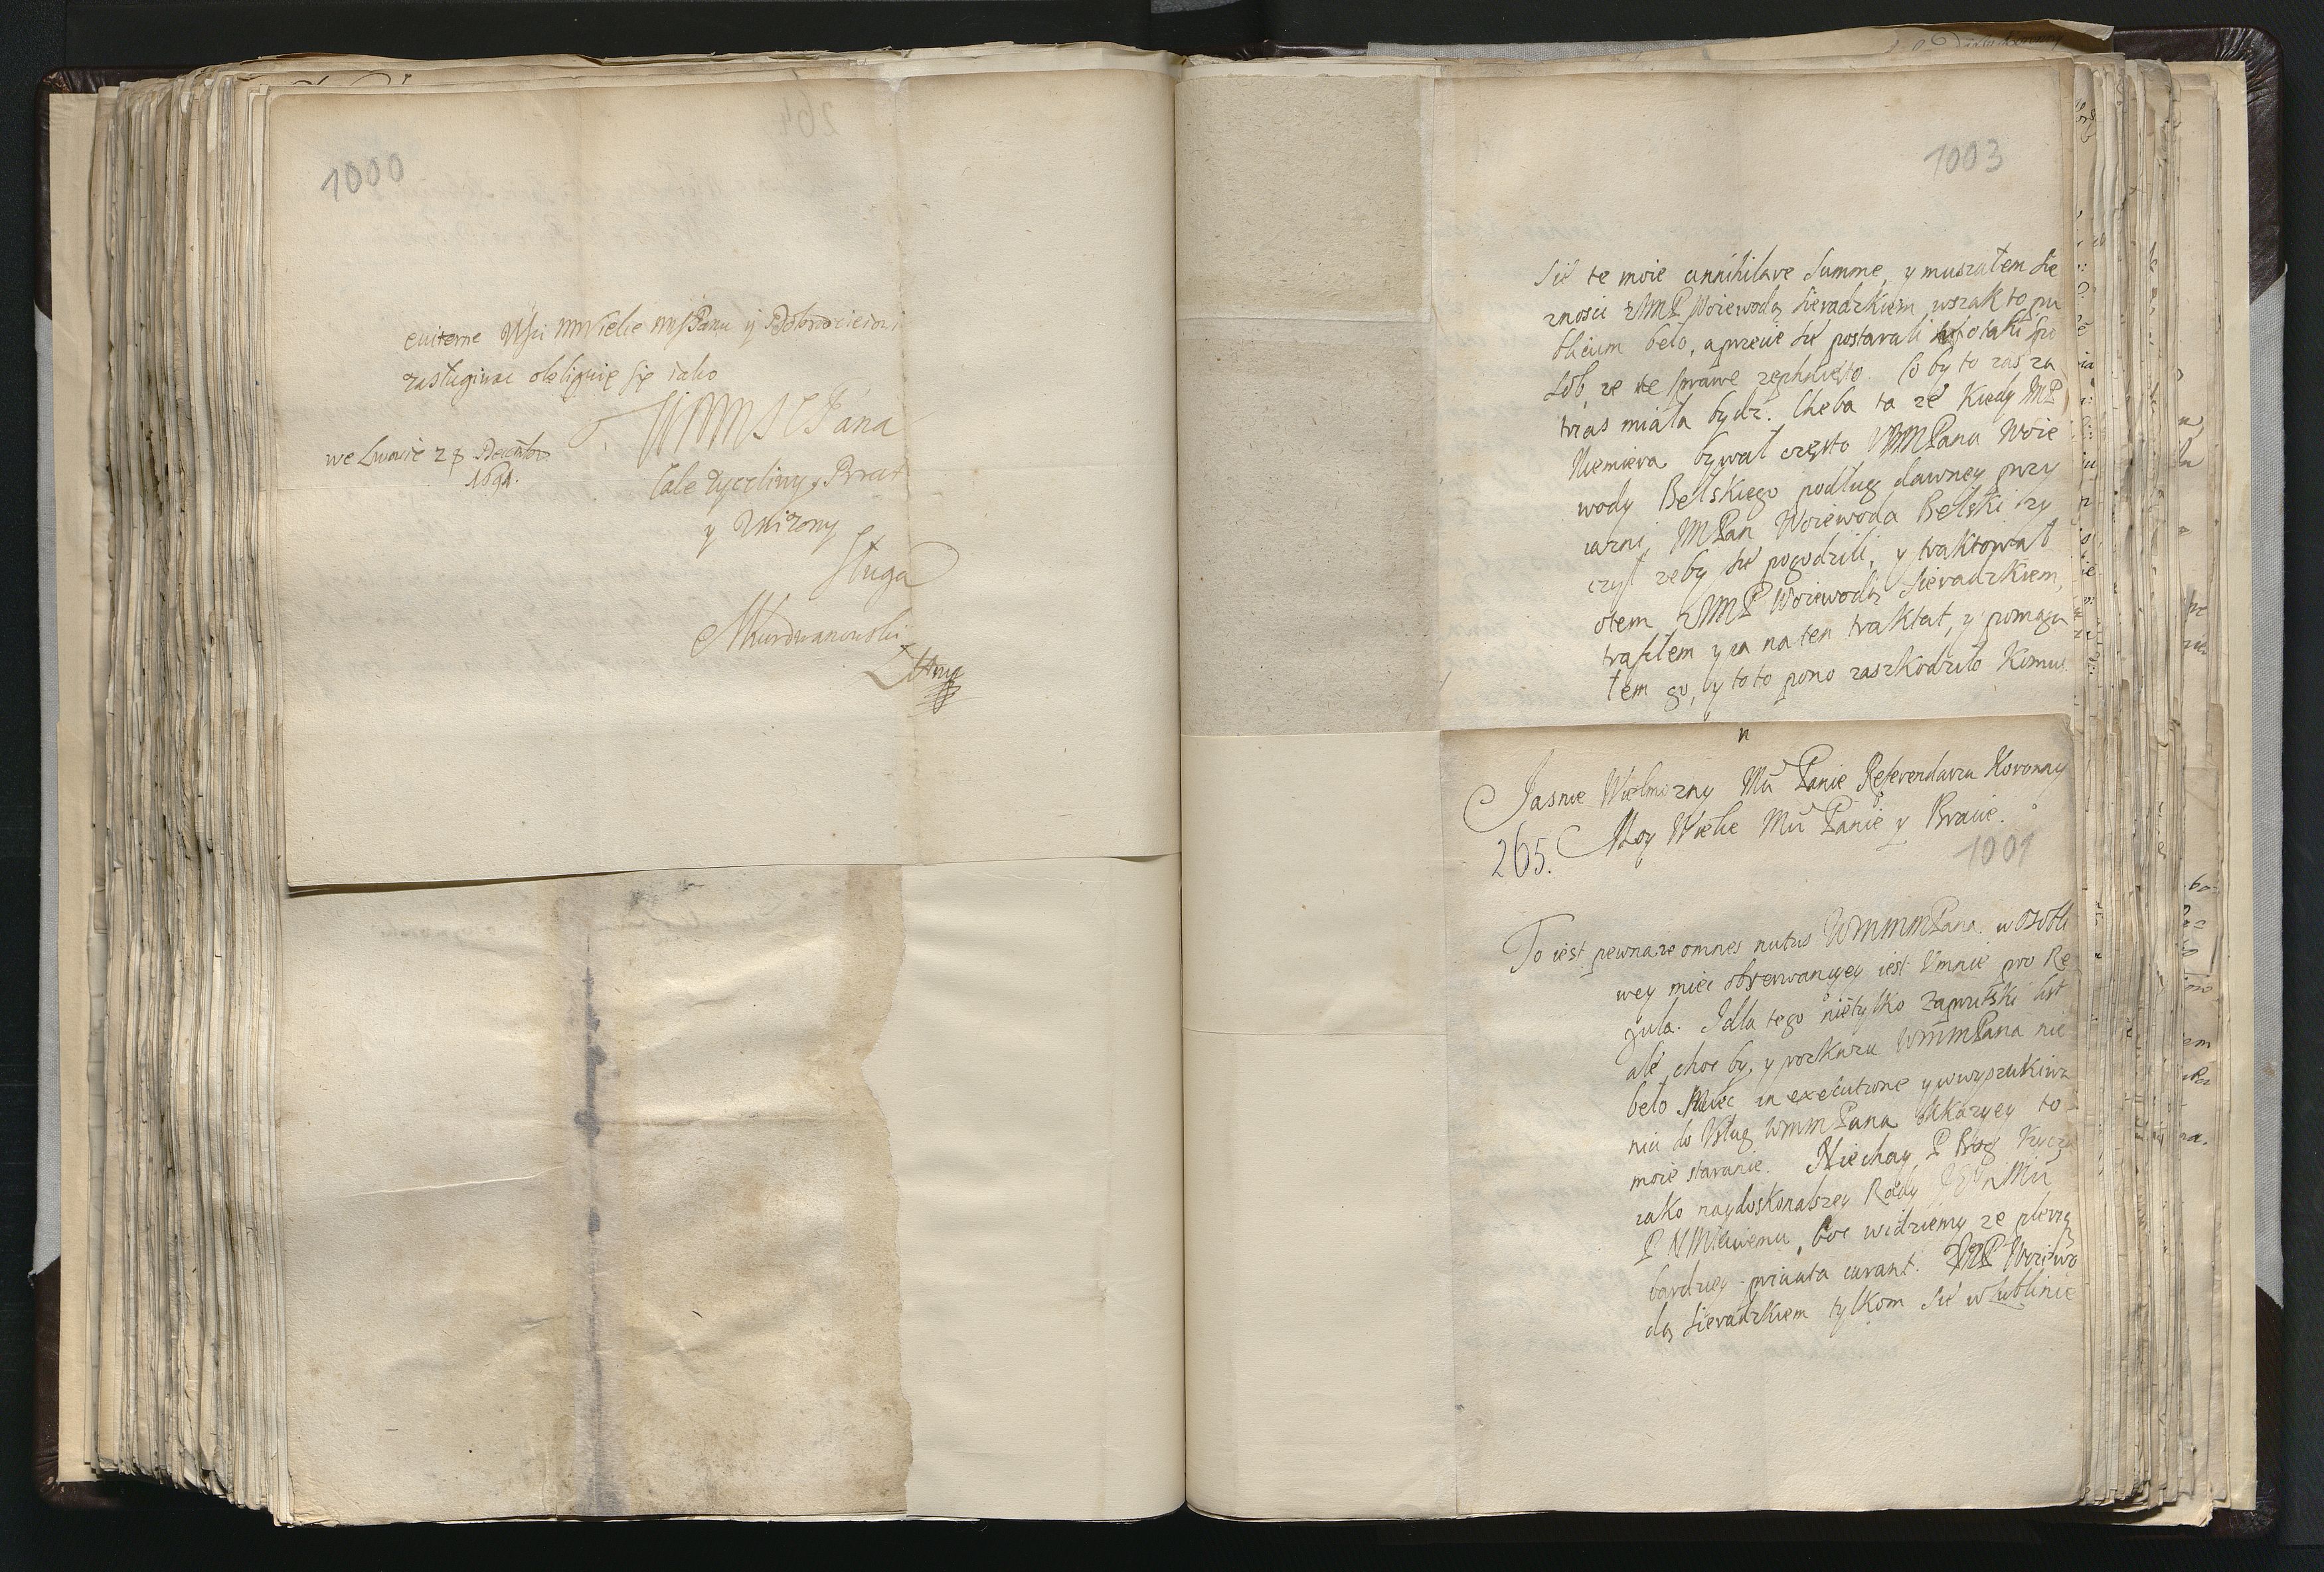 1000
eviterne
zasługiwac obliguię się iako
WMMSCPana
we Lwowie 28 Decembr
1691.
Cale zyczliwy Brat
y Unizony
Sługa
MKurdwanowski
1003
Sie te moie annihilare Summe, y muszałem sie
znosic zJMP Woiewodą Sieradzkiem, wszak to pu
blicum beło, a przecie sie postarali o taki spo
sob, ze te sprawe zepchnięto. Co by to zas za
trias miała bydz. Cheba ta ze kiedy JMP
Niemiera bywał często UJMPana Woie
wody Bełskiego podług dawney przy
iazni JMPan Woiewoda Bełski zy
czył zeby sie pogodzili, y traktował
otem zJMP Woiewodą Sieradzkiem,
trafiłem y ia na ten traktat, y pomaga
łem go, y to to pono zaszkodziło komu.
Jasnie Wielmozny Mci Panie Referendarzu Koronny
Moy Wielce Mci Panie y Bracie.
265.
1001
To iest pewna ze omnes nutus WMMMPana w osobli
wey miec obserwancyey iest Umnie pro Re
gula. I dla tego nietylko Zapustski list
ale choc by y rozkazu WMMPana nie
beło miec in executione y w wyszukiwa
niu do Usług WMMPana okkazyey to
moie staranie. Niechay P Bog
iako naydoskonalszey Rady
P NMłciwemu, boc widziemy ze plerzą
bardziey privata curant. ZJMP Woiewo
dą Sieradzkiem tylkom sie w Lublinie